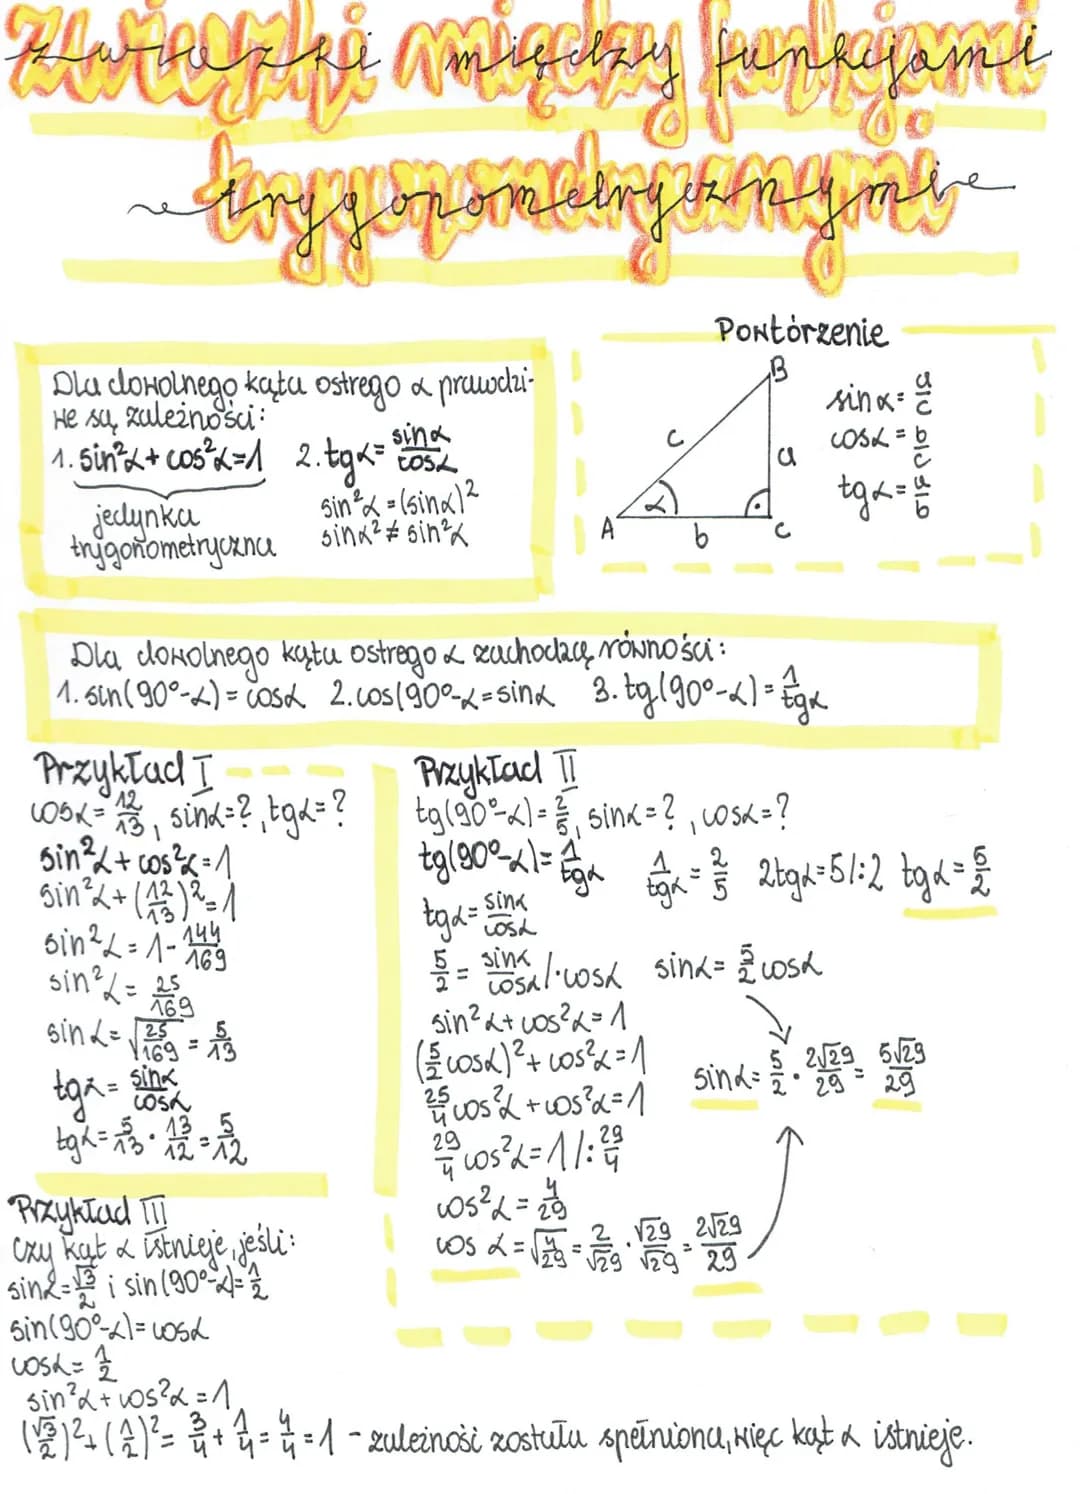 Związki między funkcjami
trygonometrycznymi
Dla dowolnego kąta ostrego α prawdzi-
we są zależności:
1. sin²α + cos²α = 1 2. tgα = sinα/cosα
jedynka
trygonometryczna
sin²α = (sinα)²
sinα² ≠ sin²α
Powtórzenie
B
c
a
α
A
b
C
sinα = a/c
cosα = b/c
tgα = a/b
Dla dowolnego kąta ostrego α zachodzą równości:
1. sin(90°-α) = cosα 2. cos(90°-α = sinα 3. tg(90°-α) = 1/tgα
Przykład I
cosα = 12/13, sinα=?, tgα=?
sin²α + cos²α = 1
sin²α + (12/13)² = 1
sin²α = 1 - 144/169
sin²α = 25/169
sinα = √25/169 = 5/13
tgα = sinα/cosα
tgα = 5/13 · 13/12 = 5/12
Przykład II
tg(90°-α) = 2/5, sinα=?, cosα=?
tg(90°-α) = 1/tgα 1/tgα = 2/5 2tgα=5/:2 tgα = 5/2
tgα = sinα/cosα
5/2 = sinα/cosα /·cosα sinα = 5/2 cosα
sin²α + cos²α = 1
(5/2 cosα)² + cos²α = 1
sinα = 5/2 · 2√29/29 = 5√29/29
25/4 cos²α + cos²α = 1
29/4 cos²α = 1 /: 29/4
cos²α = 4/29
cos α = √4/29 = 2/√29 · √29/√29 = 2√29/29
Przykład III
Czy kąt α istnieje, jeśli:
sinα = √3/2 i sin(90°-α) = 1/2
sin(90°-α) = cosα
cosα = 1/2
sin²α + cos²α = 1
(√3/2)² + (1/2)² = 3/4 + 1/4 = 4/4 = 1 - zależność została spełniona, więc kąt α istnieje.